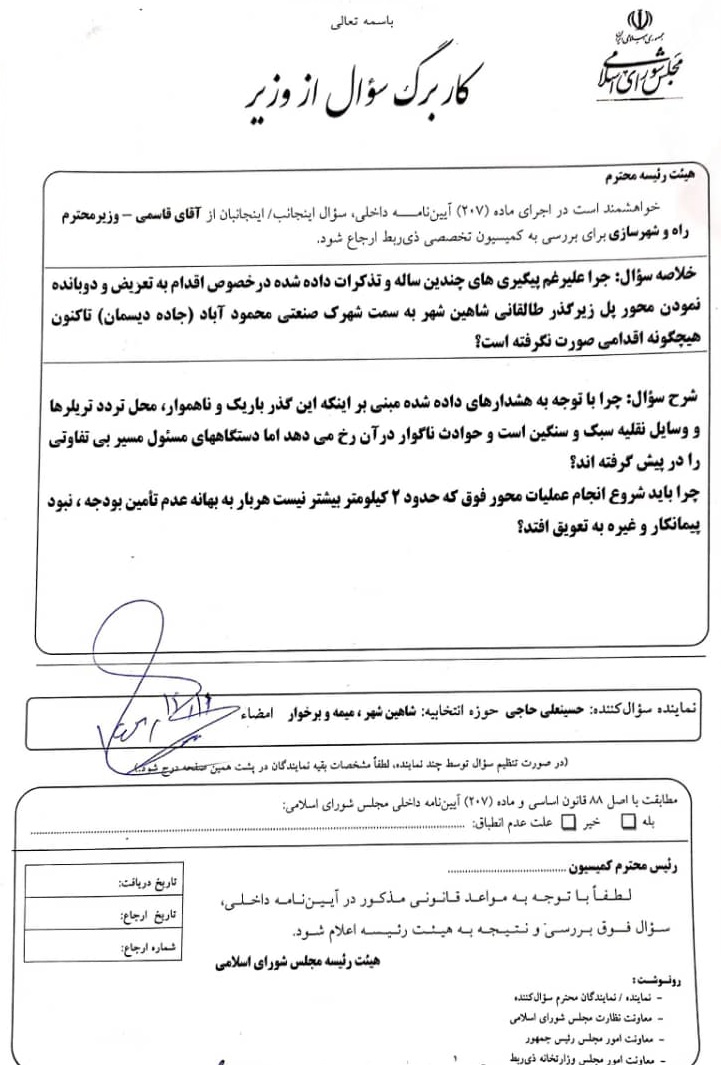 باسمه تعالی
جمهوری اسلامی ایران
مجلس شورای اسلامی
کاربرگ سؤال از وزیر
هیئت رئیسه محترم
خواهشمند است در اجرای ماده (۲۰۷) آیین‌نامـــه داخلی، سؤال اینجانب/ اینجانبان از آقای قاسمی – وزیرمحترم
راه و شهرسازی برای بررسی به کمیسیون تخصصی ذی‌ربط ارجاع شود.
خلاصه سؤال: چرا علیرغم پیگیری های چندین ساله و تذکرات داده شده درخصوص اقدام به تعریض و دوبانده
نمودن محور پل زیرگذر طالقانی شاهین شهر به سمت شهرک صنعتی محمود آباد (جاده دیسمان) تاکنون
هیچگونه اقدامی صورت نگرفته است؟
شرح سؤال: چرا با توجه به هشدارهای داده شده مبنی بر اینکه این گذر باریک و ناهموار، محل تردد تریلرها
و وسایل نقلیه سبک و سنگین است و حوادث ناگوار درآن رخ می دهد اما دستگاههای مسئول مسیر بی تفاوتی
را در پیش گرفته اند؟
چرا باید شروع انجام عملیات محور فوق که حدود ۲ کیلومتر بیشتر نیست هربار به بهانه عدم تأمین بودجه ، نبود
پیمانکار و غیره به تعویق افتد؟
نماینده سؤال‌کننده: حسینعلی حاجی حوزه انتخابیه: شاهین شهر ، میمه و برخوار امضاء
(در صورت تنظیم سؤال توسط چند نماینده، لطفاً مشخصات بقیه نمایندگان در پشت همین صفحه درج شود.)
مطابقت با اصل ۸۸ قانون اساسی و ماده (۲۰۷) آیین‌نامه داخلی مجلس شورای اسلامی:
بله خیر علت عدم انطباق:
رئیس محترم کمیسیون
لطفاً با توجه به مواعد قانونی مذکور در آیین‌نامه داخلی،
سؤال فوق بررسی و نتیجه به هیئت رئیسه اعلام شود.
هیئت رئیسه مجلس شورای اسلامی
تاریخ دریافت:
تاریخ ارجاع:
شماره ارجاع:
رونوشت:
- نماینده / نمایندگان محترم سؤال‌کننده
- معاونت نظارت مجلس شورای اسلامی
- معاونت امور مجلس رئیس جمهور
- معاونت امور مجلس وزارتخانه ذی‌ربط
۱